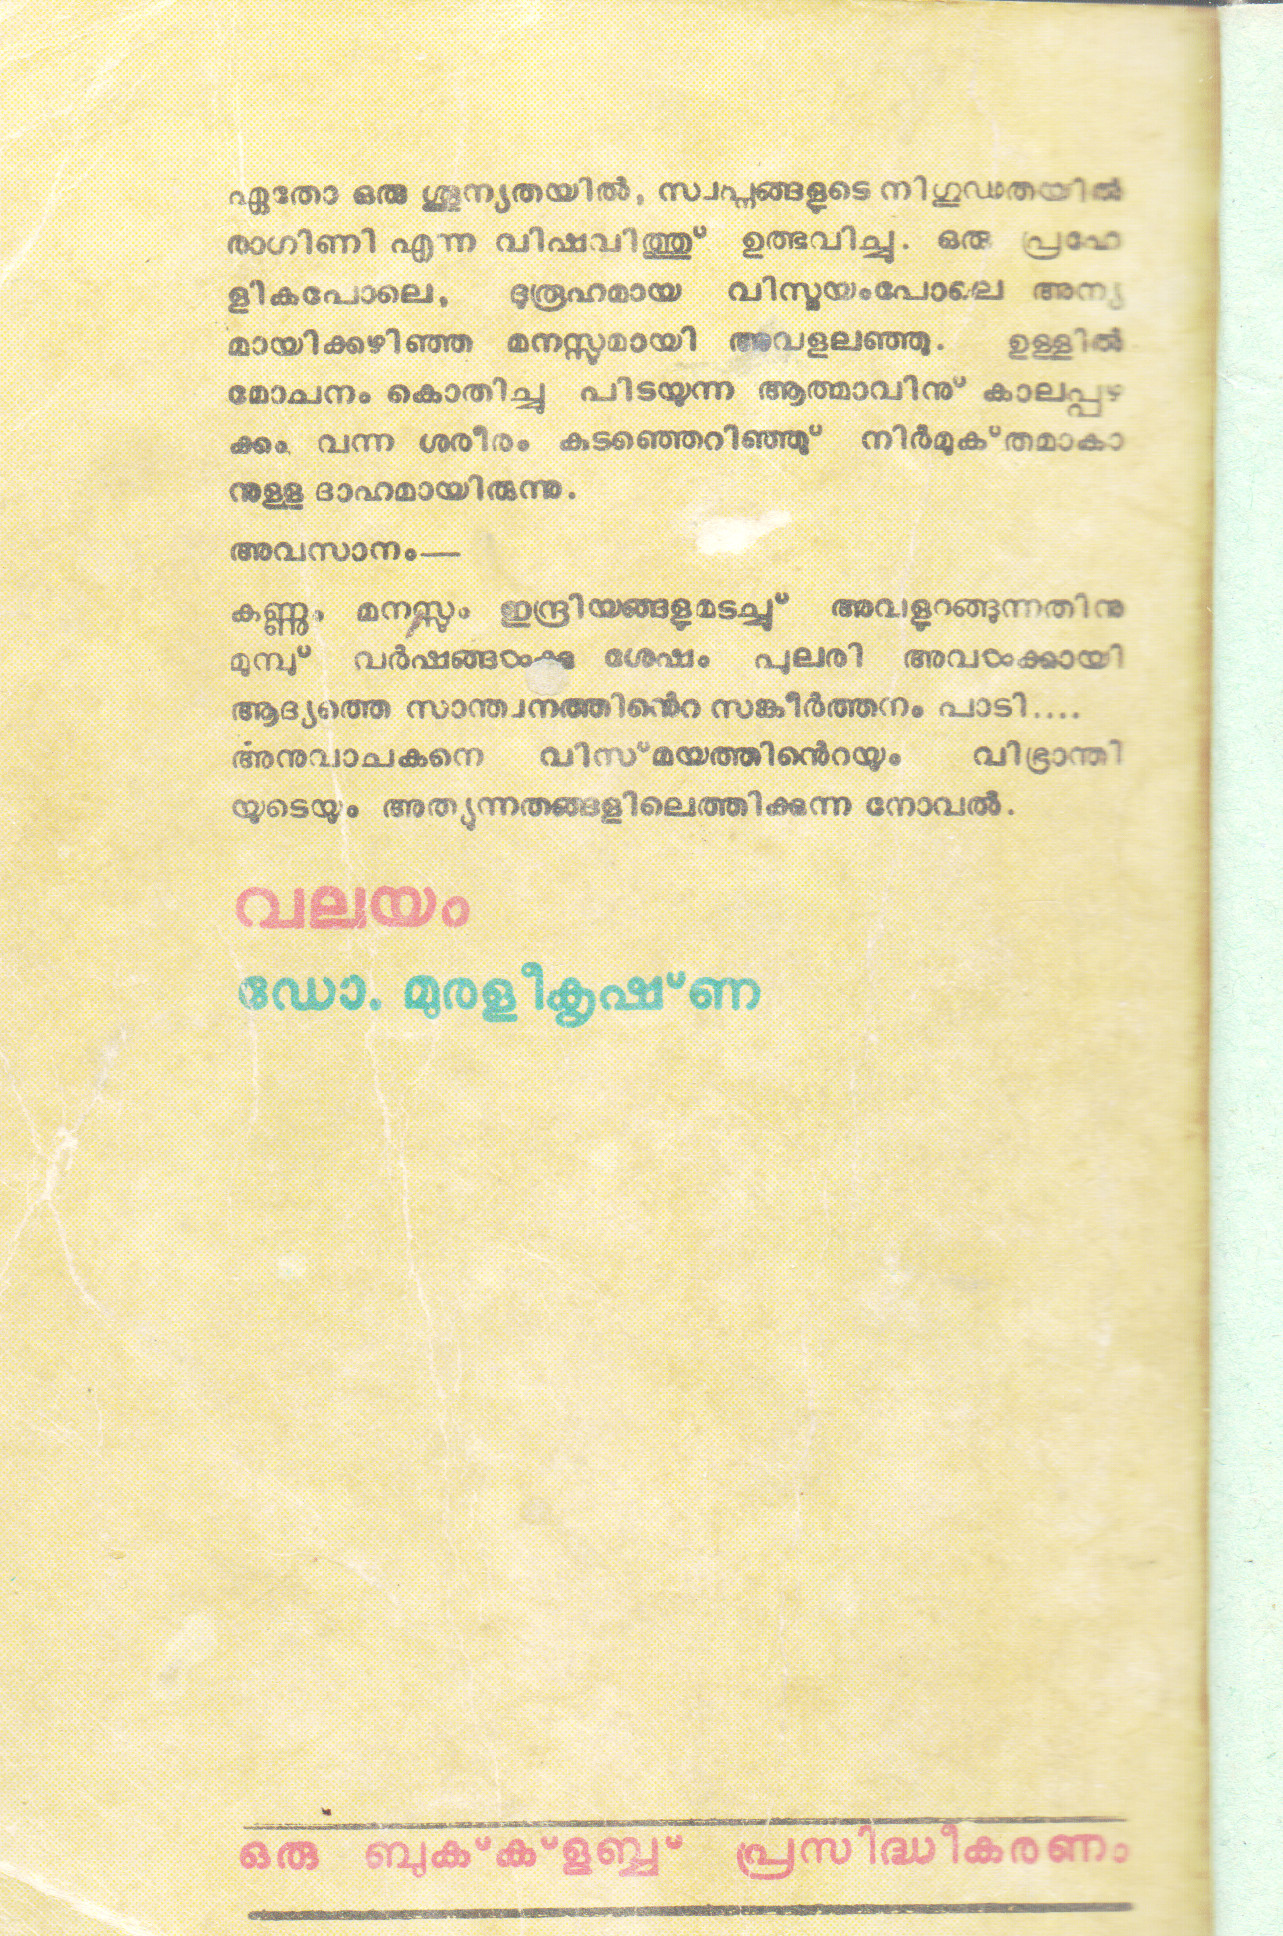 ഏതോ ഒരു ശൂന്യതയിൽ, സ്വപ്നങ്ങളുടെ നിഗൂഢതയിൽ
രാഗിണി എന്ന വിഷവിത്തു് ഉത്ഭവിച്ചു. ഒരു പ്രഹേ
ളികപോലെ, ദുരൂഹമായ വിസ്മയംപോലെ അന്യ
മായിക്കഴിഞ്ഞ മനസ്സുമായി അവളലഞ്ഞു. ഉള്ളിൽ
മോചനം കൊതിച്ചു പിടയുന്ന ആത്മാവിനു് കാലപ്പഴ
ക്കം വന്ന ശരീരം കുടഞ്ഞെറിഞ്ഞു് നിർമുക്തമാകാ
നുള്ള ദാഹമായിരുന്നു.
അവസാനം—
കണ്ണും മനസ്സും ഇന്ദ്രിയങ്ങളുമടച്ചു് അവളുറങ്ങുന്നതിനു
മുമ്പു് വർഷങ്ങൾക്കു ശേഷം പുലരി അവൾക്കായി
ആദ്യത്തെ സാന്ത്വനത്തിൻെറ സങ്കീർത്തനം പാടി....
അനുവാചകനെ വിസ്മയത്തിൻെറയും വിഭ്രാന്തി
യുടെയും അത്യുന്നതങ്ങളിലെത്തിക്കുന്ന നോവൽ.
വലയം
ഡോ. മുരളീകൃഷ്ണ
ഒരു ബുക്ക്ളബ്ബ് പ്രസിദ്ധീകരണം